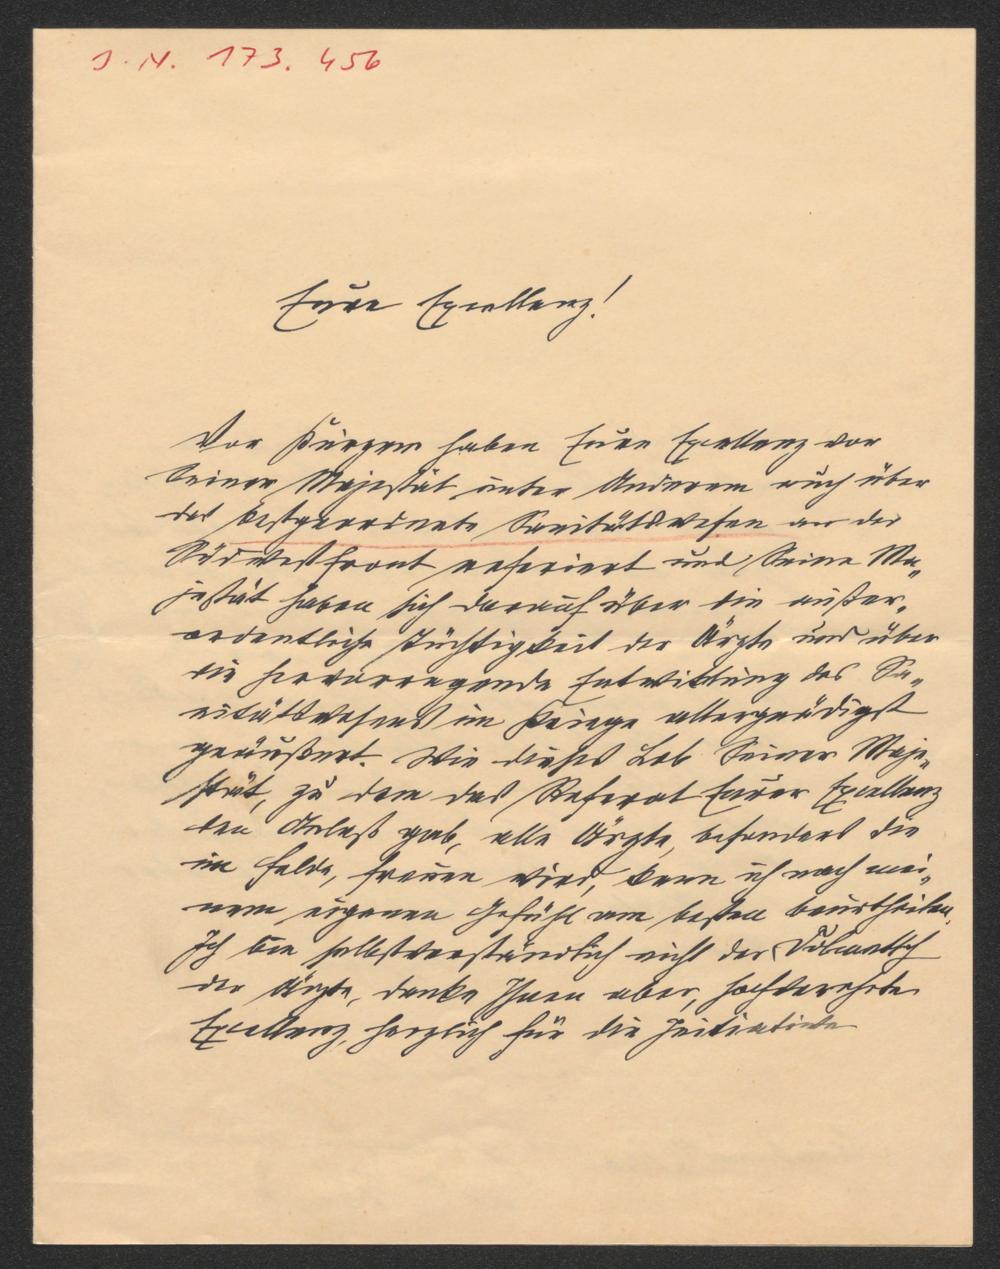 J. N. 173.456
Eure Excellenz!
Vor Kurzem haben Eure Excellenz vor
Seiner Majestät unter Anderem auch über
das bestgeordnete Sanitätswesen an der
Südwestfront referiert und Seine Ma-
jestät haben sich darauf über die außer-
ordentliche Tüchtigkeit der Ärzte und über
die hervorragende Entwicklung des Sa-
nitätswesens im Kriege allergnädigst
geäußert. Wie dieses Lob Seiner Maje-
stät, zu dem das Referat Eurer Excellenz
den Anlaß gab, alle Ärzte, besonders die
im Felde, freuen wird, kann ich nach mei-
nem eigenen Gefühl am besten beurtheilen.
Ich bin selbstverständlich nicht der Dolmetsch
der Ärzte, danke Ihnen aber, hochverehrte
Excellenz, herzlich für die Initiative